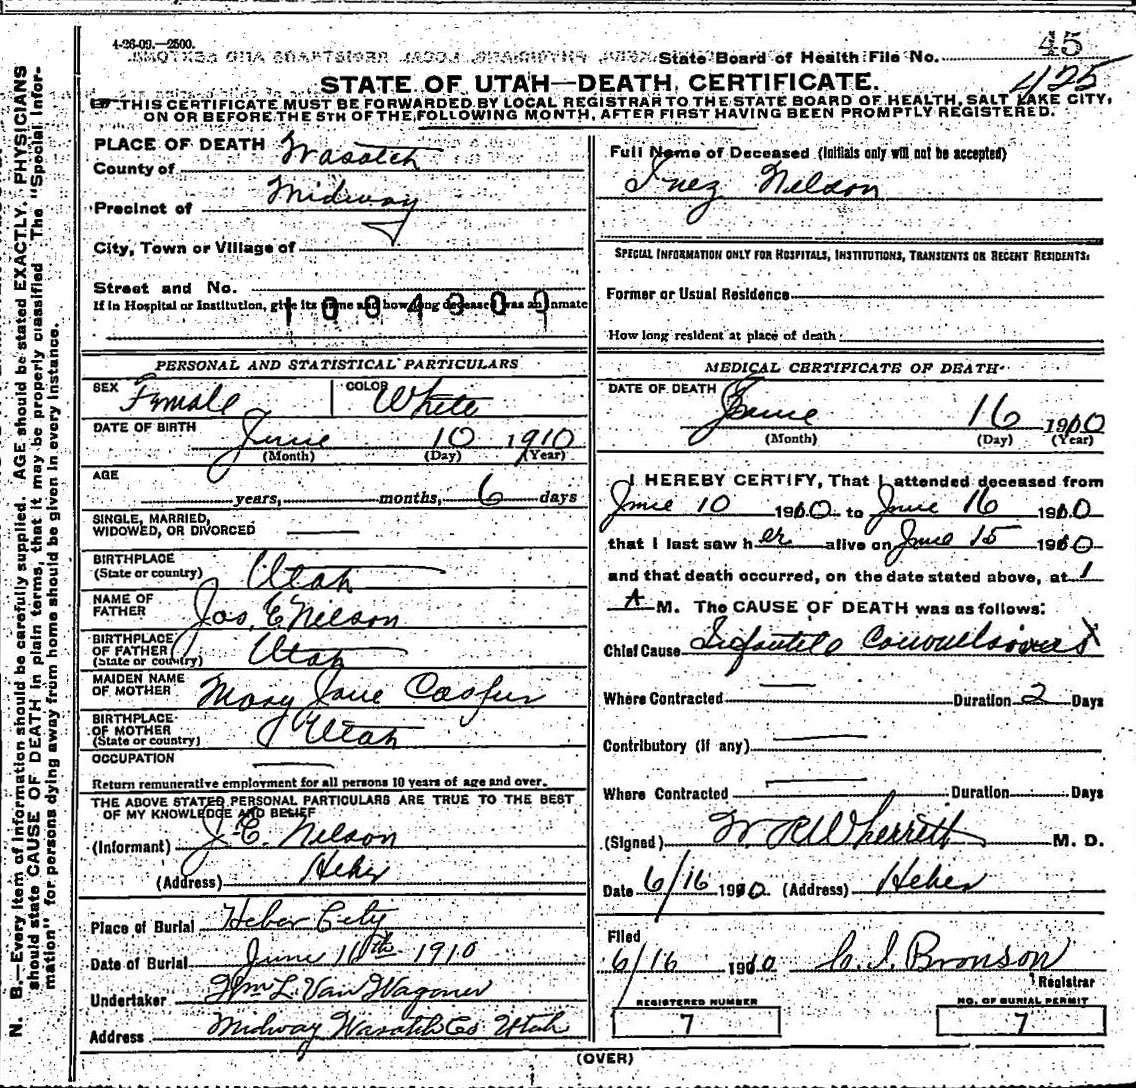 4-26-09.—2500.
State Board of Health File No. 45
425
STATE OF UTAH—DEATH CERTIFICATE.
THIS CERTIFICATE MUST BE FORWARDED BY LOCAL REGISTRAR TO THE STATE BOARD OF HEALTH, SALT LAKE CITY,
ON OR BEFORE THE 5TH OF THE FOLLOWING MONTH, AFTER FIRST HAVING BEEN PROMPTLY REGISTERED.
N. B.—Every item of information should be carefully supplied. AGE should be stated EXACTLY. PHYSICIANS
should state CAUSE OF DEATH in plain terms, that it may be properly classified. The "Special Infor-
mation" for persons dying away from home should be given in every instance.
PLACE OF DEATH
County of Wasatch
Precinct of Midway
City, Town or Village of
Street and No.
If in Hospital or Institution, give its name and how long deceased was an inmate
1004309
PERSONAL AND STATISTICAL PARTICULARS
SEX Female COLOR White
DATE OF BIRTH June 10 1910
(Month) (Day) (Year)
AGE
years, months, 6 days
SINGLE, MARRIED,
WIDOWED, OR DIVORCED
BIRTHPLACE
(State or country) Utah
NAME OF
FATHER Jos. E Nilson
BIRTHPLACE
OF FATHER
(State or country) Utah
MAIDEN NAME
OF MOTHER Mary Jane Casper
BIRTHPLACE
OF MOTHER
(State or country) Utah
OCCUPATION
Return remunerative employment for all persons 10 years of age and over.
THE ABOVE STATED PERSONAL PARTICULARS ARE TRUE TO THE BEST
OF MY KNOWLEDGE AND BELIEF
(Informant) J. E. Nilson
(Address) Heber
Place of Burial Heber City
Date of Burial June 1910
Undertaker Wm L. Van Wagoner
Address Midway Wasatch Co Utah
Full Name of Deceased (Initials only will not be accepted)
Inez Nelson
SPECIAL INFORMATION ONLY FOR HOSPITALS, INSTITUTIONS, TRANSIENTS OR RECENT RESIDENTS.
Former or Usual Residence
How long resident at place of death
MEDICAL CERTIFICATE OF DEATH
DATE OF DEATH June 16 1910
(Month) (Day) (Year)
I HEREBY CERTIFY, That I attended deceased from
June 10 1910 to June 16 1910
that I last saw her alive on June 15 1910
and that death occurred, on the date stated above, at 1
A M. The CAUSE OF DEATH was as follows:
Chief Cause Infantile Convulsions X
Where Contracted Duration 2 Days
Contributory (if any)
Where Contracted Duration Days
(Signed) W. R Wherritt M. D.
Date 6/16 1910 (Address) Heber
Filed
6/16 1910 C. I. Bronson
Registrar
REGISTERED NUMBER
7
NO. OF BURIAL PERMIT
7
(OVER)